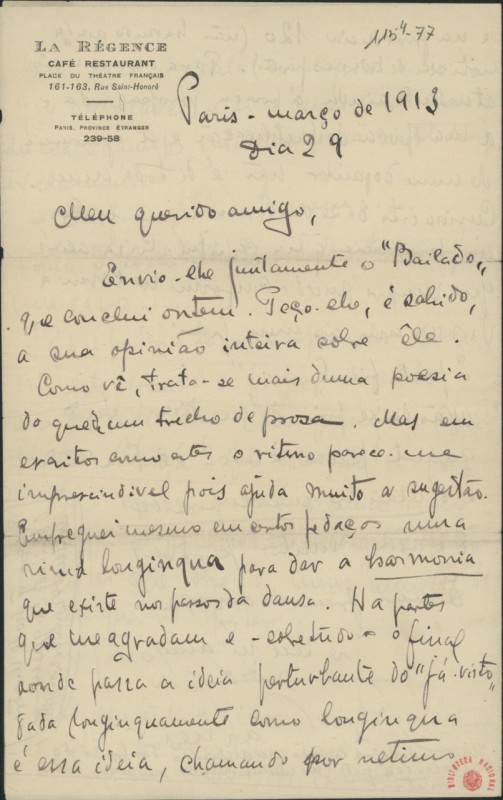 115⁴-77
LA RÉGENCE
CAFÉ RESTAURANT
PLACE DU THÉATRE FRANÇAIS
161-163, Rue Saint-Honoré
TÉLÉPHONE
PARIS, PROVINCE ÉTRANGER
239-58
Paris - março de 1913
Dia 29
Meu querido amigo,
Envio-lhe juntamente o "Bailado",
que conclui ontem. Peço-lhe, é sabido,
a sua opinião inteira sobre êle.
Como vê, trata-se mais duma poesia
do que dum trecho de prosa. Mas em
escritos como estes o ritmo parece-me
imprescindivel pois ajuda muito a sugestão.
Empreguei mesmo em certos pedaços uma
rima longinqua para dar a harmonia
que existe nos passos da dansa. Ha partes
que me agradam e - sobretudo - o final
aonde passa a ideia perturbante do "já-visto"
longinquamente como longinqua
é essa ideia, chamando por
BIBLIOTECA NACIONAL